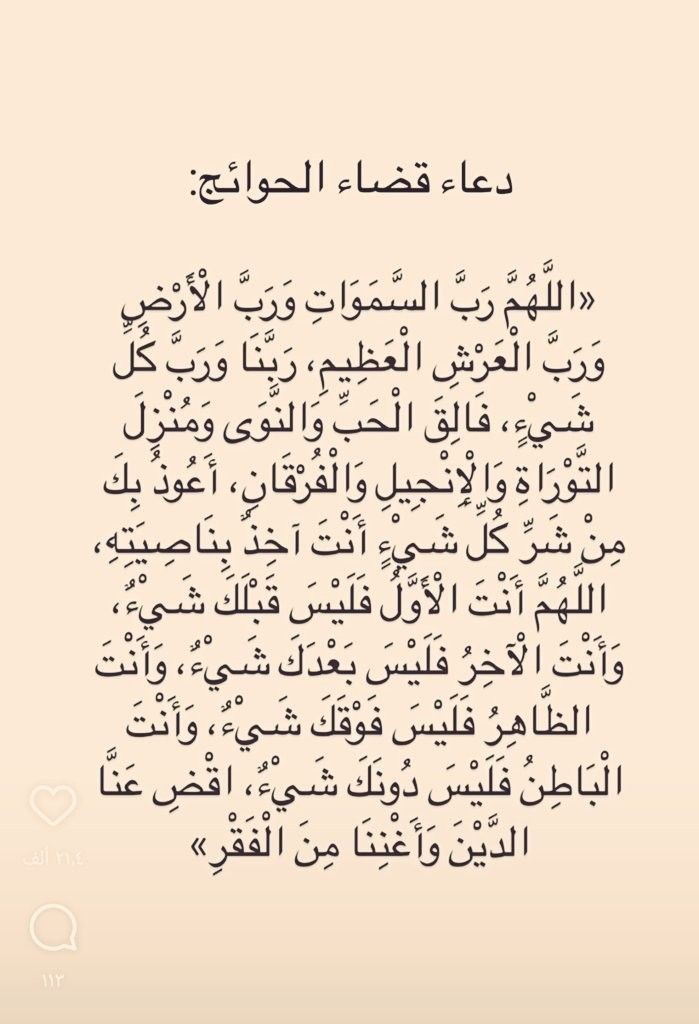 دعاء قضاء الحوائج:
«اللَّهُمَّ رَبَّ السَّمَوَاتِ وَرَبَّ الْأَرْضِ
وَرَبَّ الْعَرْشِ الْعَظِيمِ، رَبَّنَا وَرَبَّ كُلِّ
شَيْءٍ، فَالِقَ الْحَبِّ وَالنَّوَى وَمُنْزِلَ
التَّوْرَاةِ وَالْإِنْجِيلِ وَالْفُرْقَانِ، أَعُوذُ بِكَ
مِنْ شَرِّ كُلِّ شَيْءٍ أَنْتَ آخِذٌ بِنَاصِيَتِهِ،
اللَّهُمَّ أَنْتَ الْأَوَّلُ فَلَيْسَ قَبْلَكَ شَيْءٌ،
وَأَنْتَ الْآخِرُ فَلَيْسَ بَعْدَكَ شَيْءٌ، وَأَنْتَ
الظَّاهِرُ فَلَيْسَ فَوْقَكَ شَيْءٌ، وَأَنْتَ
الْبَاطِنُ فَلَيْسَ دُونَكَ شَيْءٌ، اقْضِ عَنَّا
الدَّيْنَ وَأَغْنِنَا مِنَ الْفَقْرِ»
٢١,٤ ألف
١١٣